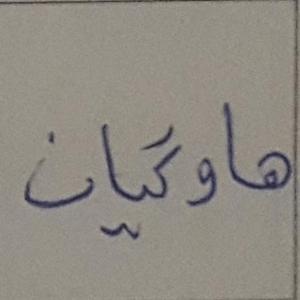 هاوکیان